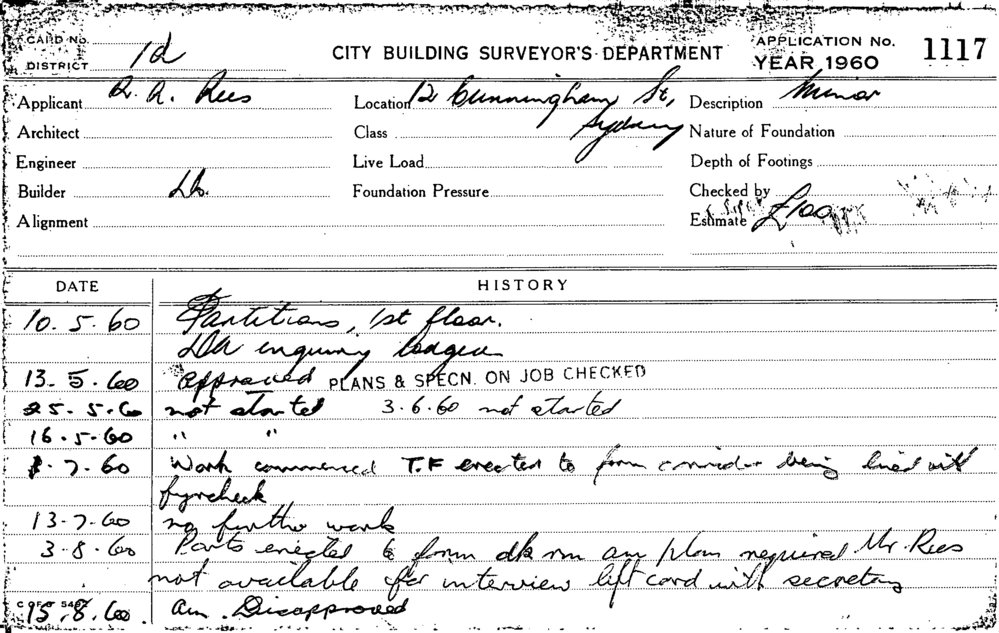 CARD No.
DISTRICT 1d
CITY BUILDING SURVEYOR'S DEPARTMENT
APPLICATION No. 1117
YEAR 1960
Applicant R. A. Rees
Location 12 Cunningham St, Sydney
Description Minor
Architect
Class
Nature of Foundation
Engineer
Live Load
Depth of Footings
Builder
Foundation Pressure
Checked by
Alignment
Estimate £100
DATE HISTORY
10.5.60 Partitions, 1st floor.
DA enquiry lodged
13.5.60 approved PLANS & SPECN. ON JOB CHECKED
25.5.60 not started 3.6.60 not started
16.5.60 " "
1.7.60 Work commenced T.F erected to form corridor being lined with
fyrcheck
13.7.60 no further work
3.8.60 Parts erected to form dk rm am plan required Mr. Rees
not available for interview left card with secretary
15.8.60 am. Disapproved